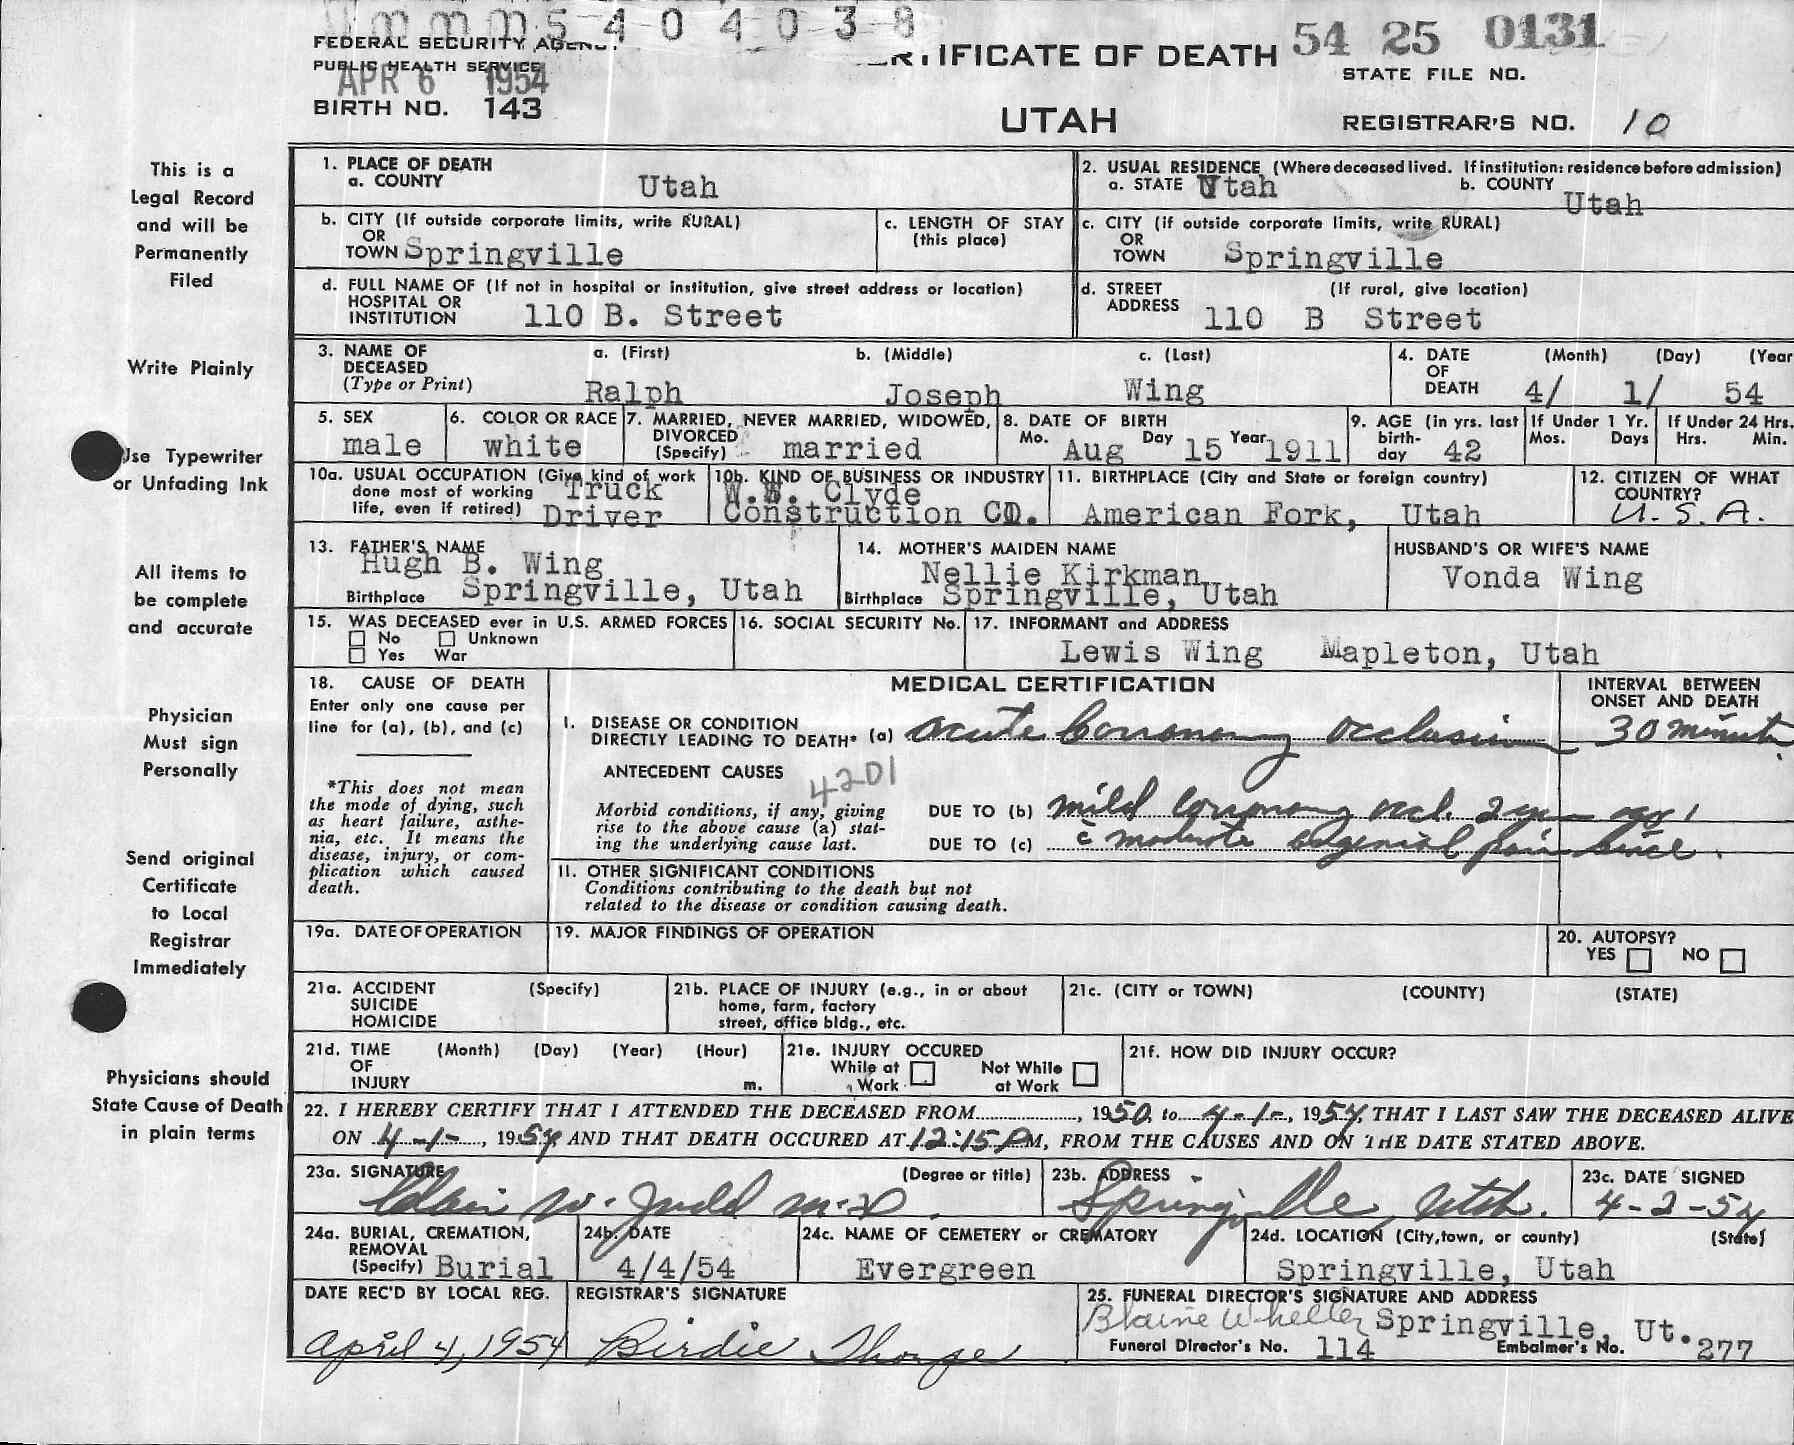 54 25 0131
FEDERAL SECURITY AGENCY
PUBLIC HEALTH SERVICE
APR 6 1954
CERTIFICATE OF DEATH
STATE FILE NO.
BIRTH NO. 143
UTAH
REGISTRAR'S NO. 10
This is a
Legal Record
and will be
Permanently
Filed
Write Plainly
Use Typewriter
or Unfading Ink
All items to
be complete
and accurate
Physician
Must sign
Personally
Send original
Certificate
to Local
Registrar
Immediately
Physicians should
State Cause of Death
in plain terms
1. PLACE OF DEATH
a. COUNTY Utah
2. USUAL RESIDENCE (Where deceased lived. If institution: residence before admission)
a. STATE Utah b. COUNTY Utah
b. CITY (If outside corporate limits, write RURAL)
OR
TOWN Springville
c. LENGTH OF STAY
(this place)
c. CITY (if outside corporate limits, write RURAL)
OR
TOWN Springville
d. FULL NAME OF (If not in hospital or institution, give street address or location)
HOSPITAL OR
INSTITUTION 110 B. Street
d. STREET (If rural, give location)
ADDRESS 110 B Street
3. NAME OF a. (First) b. (Middle) c. (Last)
DECEASED
(Type or Print) Ralph Joseph Wing
4. DATE (Month) (Day) (Year
OF
DEATH 4/ 1/ 54
5. SEX
male
6. COLOR OR RACE
white
7. MARRIED, NEVER MARRIED, WIDOWED,
DIVORCED
(Specify) married
8. DATE OF BIRTH
Mo. Aug Day 15 Year 1911
9. AGE (in yrs. last
birth-
day 42
If Under 1 Yr.
Mos. Days
If Under 24 Hrs.
Hrs. Min.
10a. USUAL OCCUPATION (Give kind of work
done most of working
life, even if retired) Truck
Driver
10b. KIND OF BUSINESS OR INDUSTRY
W.W. Clyde
Construction CO.
11. BIRTHPLACE (City and State or foreign country)
American Fork, Utah
12. CITIZEN OF WHAT
COUNTRY?
U. S. A.
13. FATHER'S NAME
Hugh B. Wing
Birthplace Springville, Utah
14. MOTHER'S MAIDEN NAME
Nellie Kirkman
Birthplace Springville, Utah
HUSBAND'S OR WIFE'S NAME
Vonda Wing
15. WAS DECEASED ever in U.S. ARMED FORCES
No Unknown
Yes War
16. SOCIAL SECURITY No.
17. INFORMANT and ADDRESS
Lewis Wing Mapleton, Utah
18. CAUSE OF DEATH
Enter only one cause per
line for (a), (b), and (c)
*This does not mean
the mode of dying, such
as heart failure, asthe-
nia, etc. It means the
disease, injury, or com-
plication which caused
death.
MEDICAL CERTIFICATION
INTERVAL BETWEEN
ONSET AND DEATH
I. DISEASE OR CONDITION
DIRECTLY LEADING TO DEATH* (a) acute Coronary occlusion 30 minutes
ANTECEDENT CAUSES
4201
Morbid conditions, if any, giving
rise to the above cause (a) stat-
ing the underlying cause last.
DUE TO (b) mild coronary occl. 2 yrs ago
DUE TO (c) c̄ moderate anginal pain since.
11. OTHER SIGNIFICANT CONDITIONS
Conditions contributing to the death but not
related to the disease or condition causing death.
19a. DATE OF OPERATION
19. MAJOR FINDINGS OF OPERATION
20. AUTOPSY?
YES NO
21a. ACCIDENT (Specify)
SUICIDE
HOMICIDE
21b. PLACE OF INJURY (e.g., in or about
home, farm, factory
street, office bldg., etc.
21c. (CITY or TOWN) (COUNTY) (STATE)
21d. TIME (Month) (Day) (Year) (Hour)
OF
INJURY m.
21e. INJURY OCCURED
While at Not While
Work at Work
21f. HOW DID INJURY OCCUR?
22. I HEREBY CERTIFY THAT I ATTENDED THE DECEASED FROM , 1950, to 4-1-, 1954, THAT I LAST SAW THE DECEASED ALIVE
ON 4-1-, 1954, AND THAT DEATH OCCURED AT 12:15 PM, FROM THE CAUSES AND ON THE DATE STATED ABOVE.
23a. SIGNATURE (Degree or title)
W. Judd M.D.
23b. ADDRESS
Springville, Utah.
23c. DATE SIGNED
4-2-54
24a. BURIAL, CREMATION,
REMOVAL
(Specify) Burial
24b. DATE
4/4/54
24c. NAME OF CEMETERY or CREMATORY
Evergreen
24d. LOCATION (City, town, or county) (State)
Springville, Utah
DATE REC'D BY LOCAL REG.
April 4, 1954
REGISTRAR'S SIGNATURE
Birdie Thorpe
25. FUNERAL DIRECTOR'S SIGNATURE AND ADDRESS
Blaine Springville, Ut.
Funeral Director's No. 114 Embalmer's No. 277